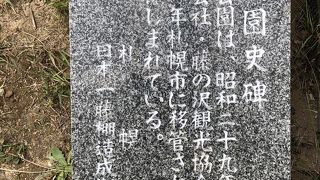 園史碑
園は、昭和二十九年
会社・藤の沢観光協
年札幌市に移管さ
しまれている。
札幌
日本一藤棚結成